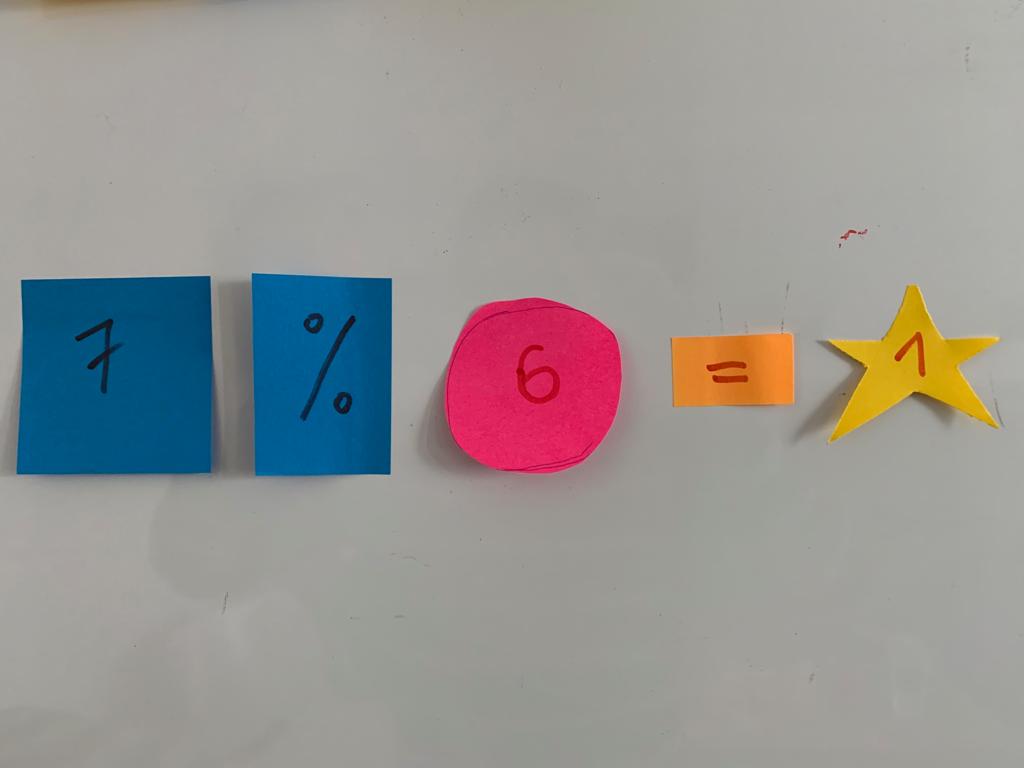 7 % 6 = 1